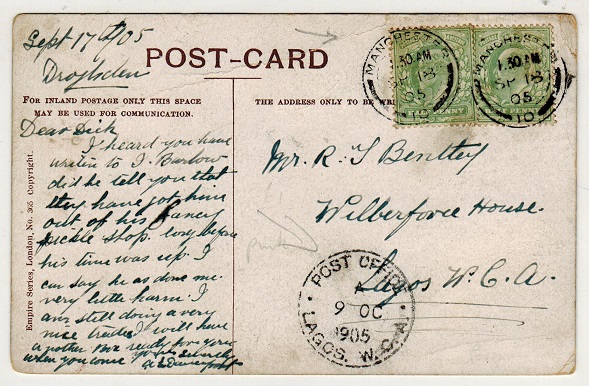 Sept 17th/05
Droylsden
POST-CARD
FOR INLAND POSTAGE ONLY THIS SPACE
MAY BE USED FOR COMMUNICATION.
THE ADDRESS ONLY TO BE WRI
MANCHESTER
1.30 AM
SP 18
05
10
MANCHESTER
1.30 AM
SP 18
05
10
Dear Dick
I heard you have
writen to J. Barlow
did he tell you that
they have got him
out of his fancy
pickle shop. long before
his time was up. I
can say he as done me
very little harm. I
am still doing a very
nice trade I will have
another Box ready for you
when you come yours sincerely
Mr. R. J Benttey
Wilberforce House.
Lagos W. C. A.
POST OFFICE
A
9 OC
1905
LAGOS. W.C.A.
Empire Series, London, No. 365 Copyright.